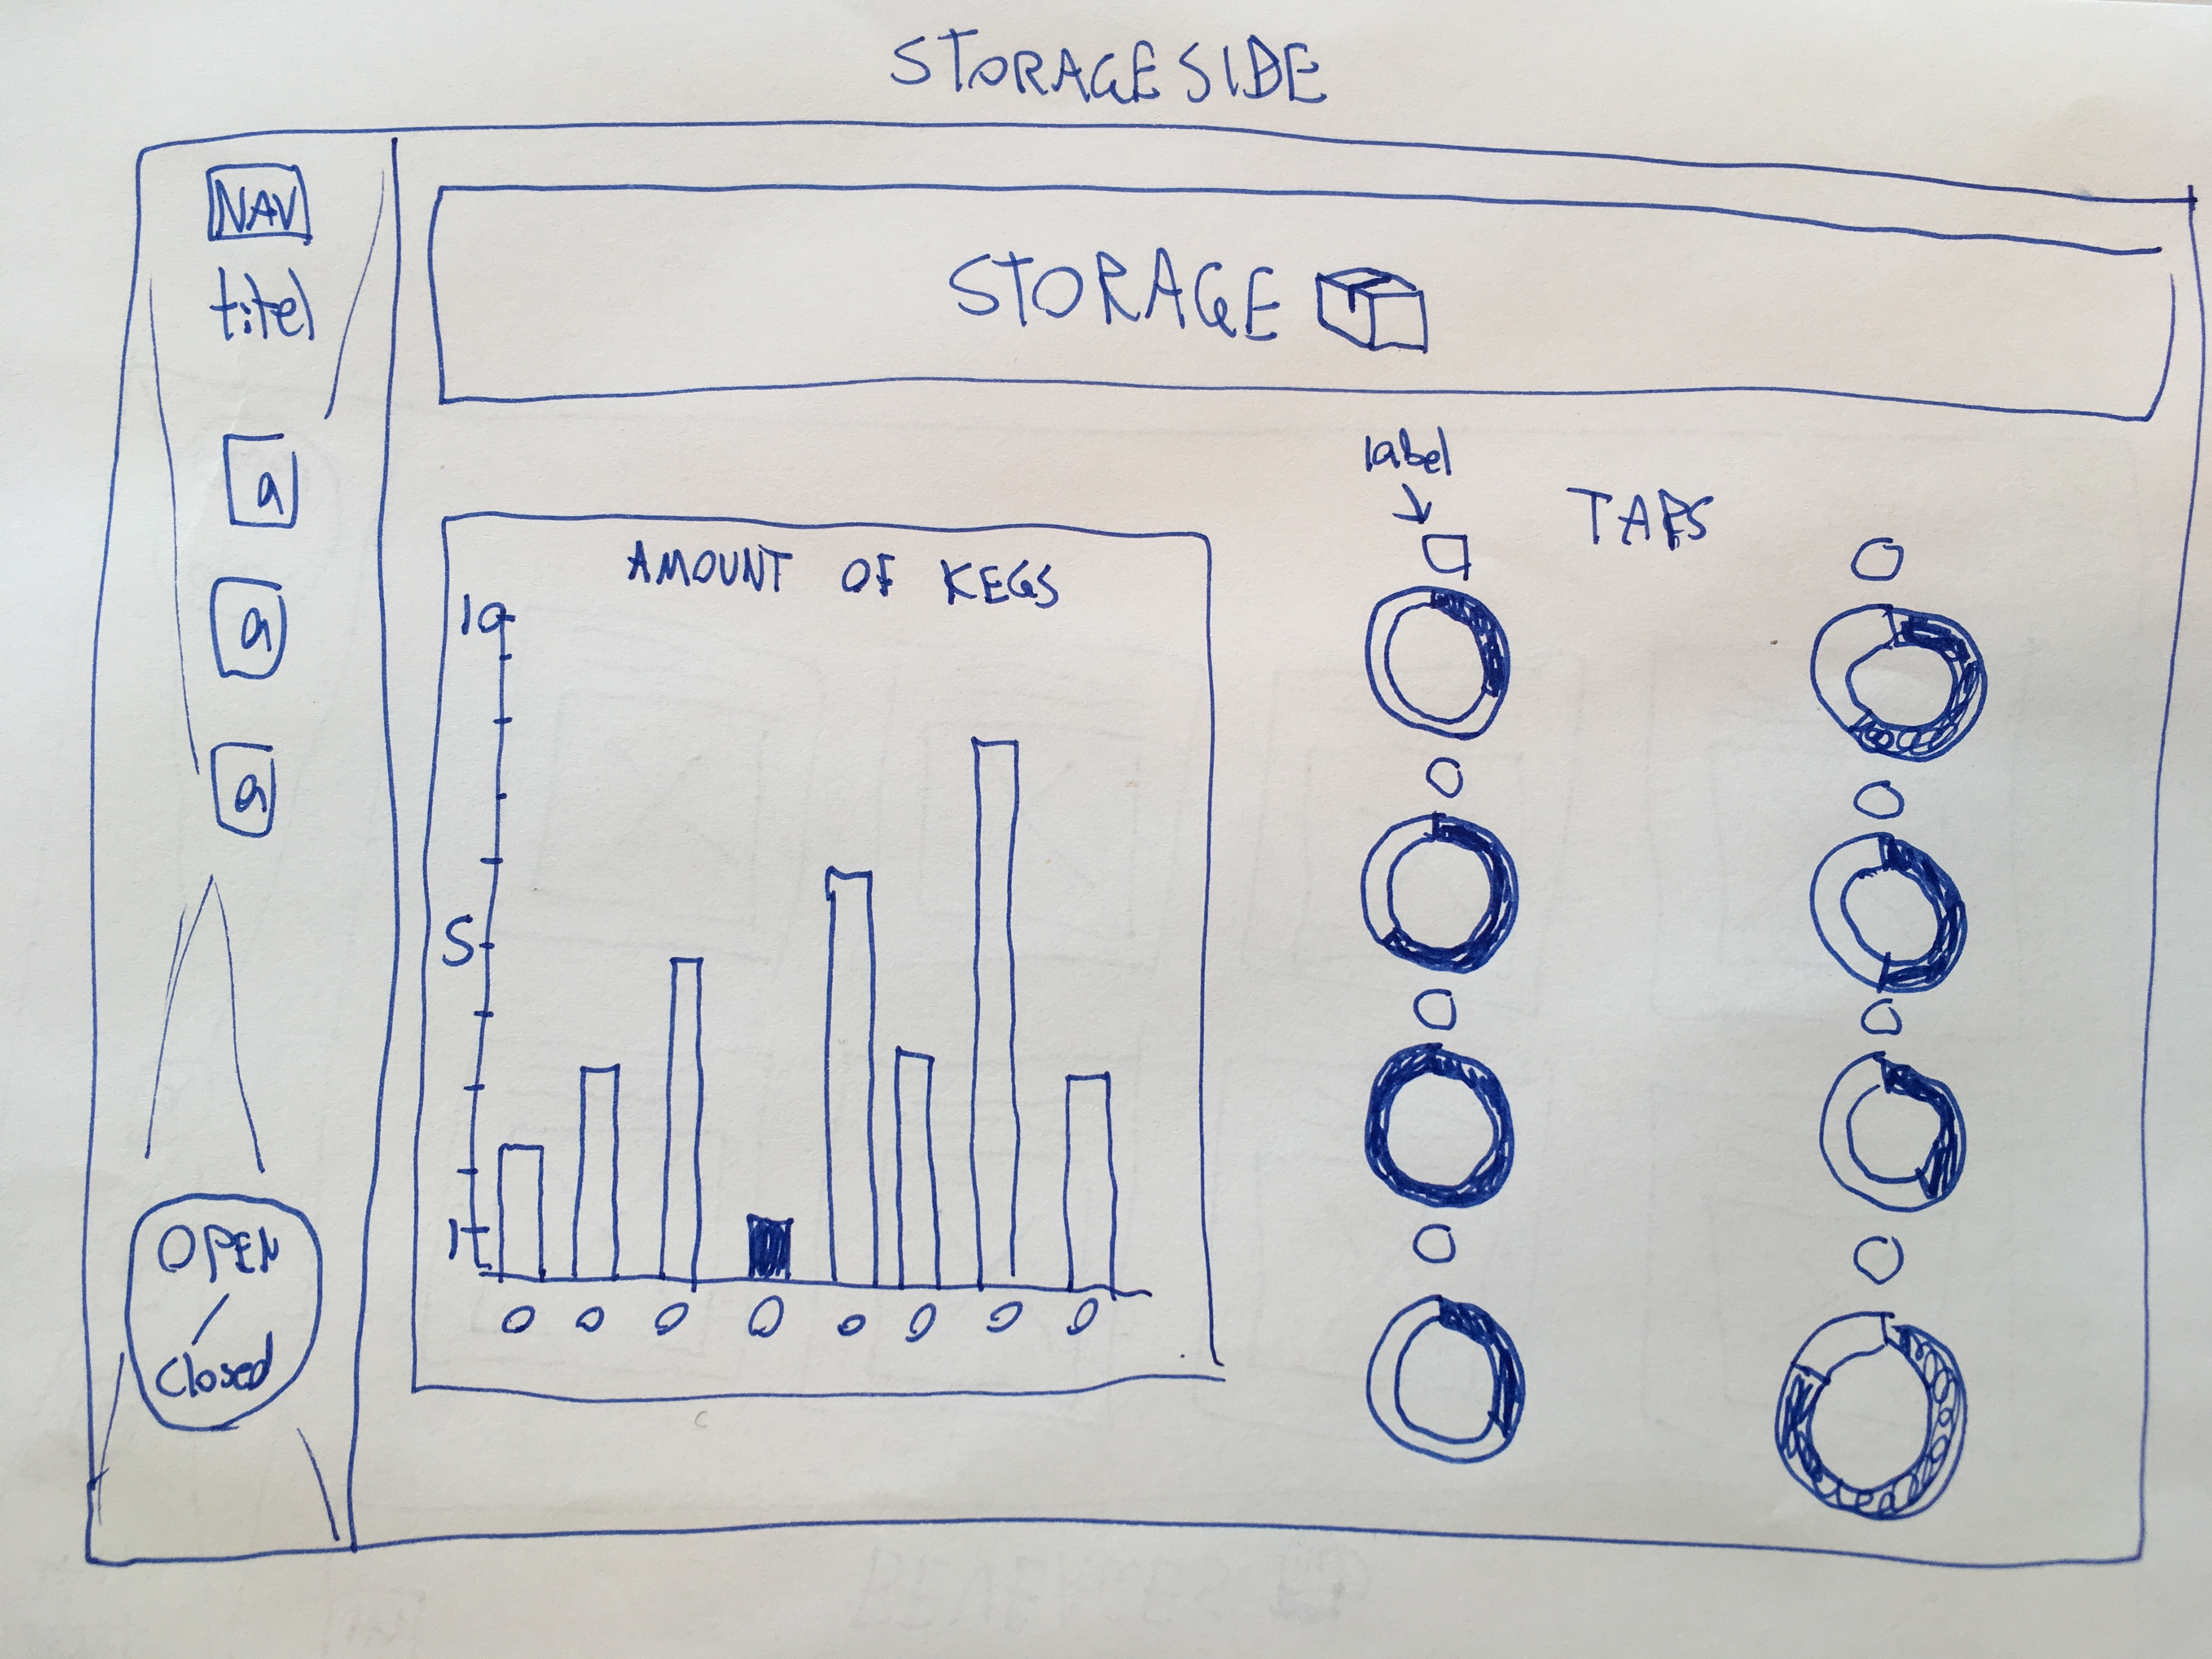 STORAGE SIDE
NAV
titel
a
a
a
OPEN
/
Closed
STORAGE
AMOUNT OF KEGS
10
5
1
label
TAPS